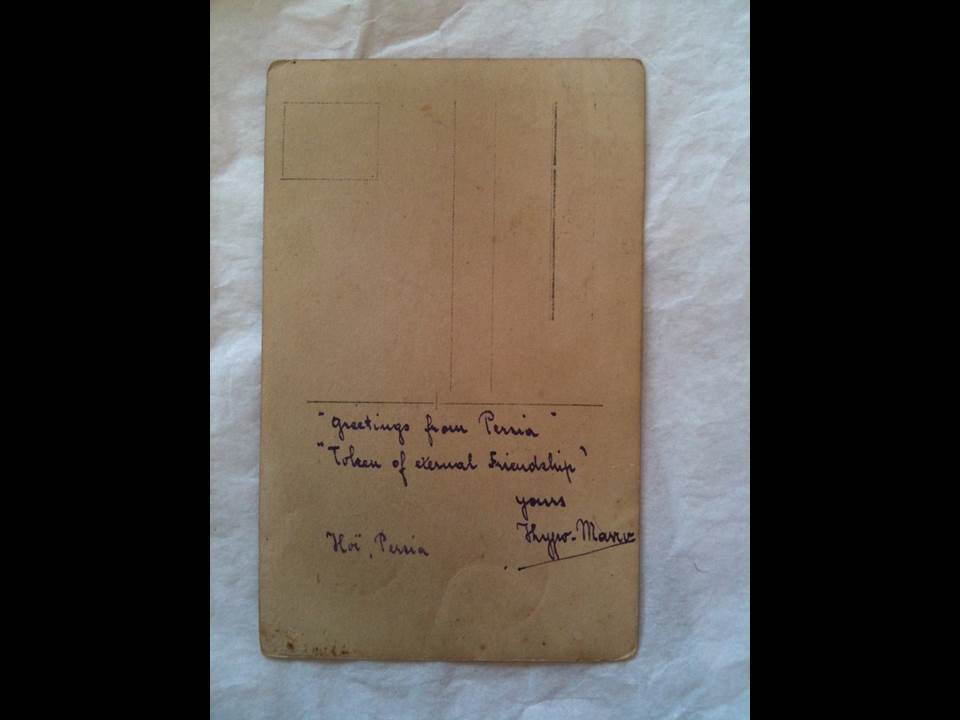 "Greetings from Persia"
"Token of eternal Friendship"
yours
Hoï, Persia